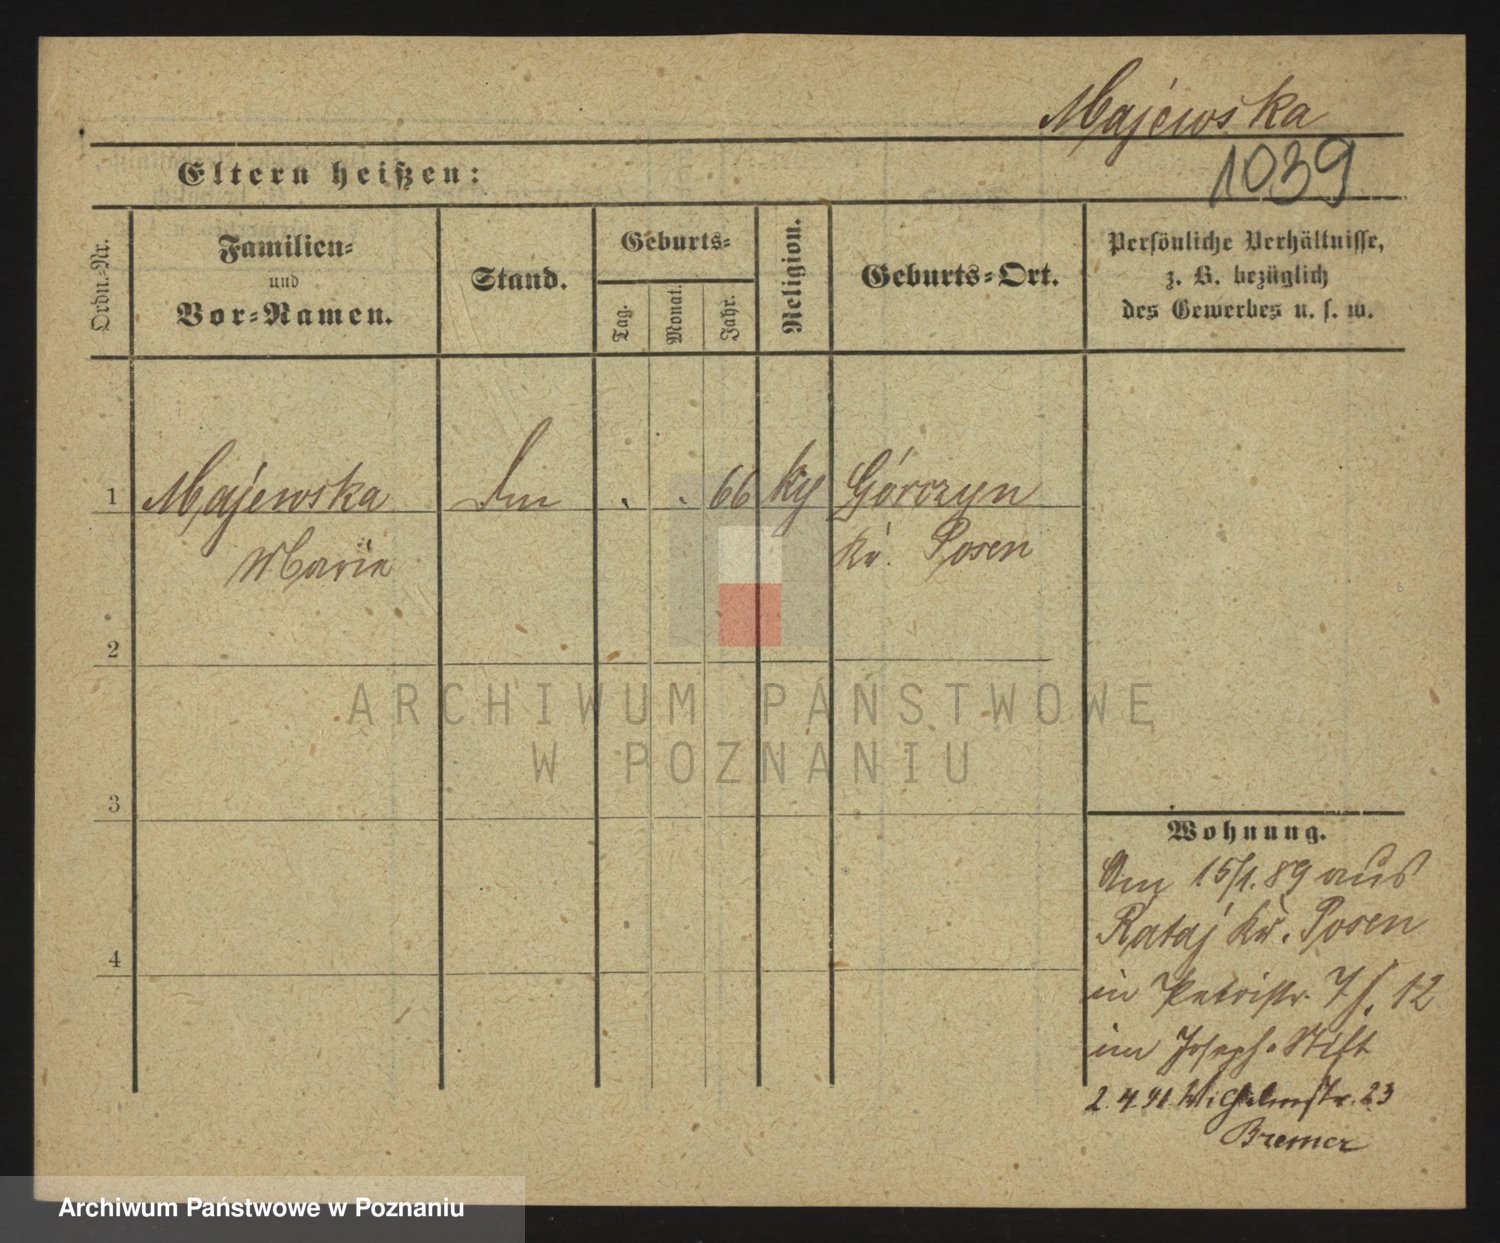 Majewska
1039
Eltern heißen:
Ordn.-Nr.
Familien-
und
Vor-Namen.
Stand.
Geburts-
Tag.
Monat.
Jahr.
Religion.
Geburts-Ort.
Persönliche Verhältnisse,
z. B. bezüglich
des Gewerbes u. s. w.
1 Majewska . . 66 Górczyn
Marie Kr. Posen
2
3
4
Wohnung.
Am 15/1.89 aus
Rataj Kr. Posen
in Petristr. 12
im Joseph-Stift
2.4.91. Wilhelmstr. 23
Bremer
ARCHIWUM PAŃSTWOWE
W POZNANIU
Archiwum Państwowe w Poznaniu